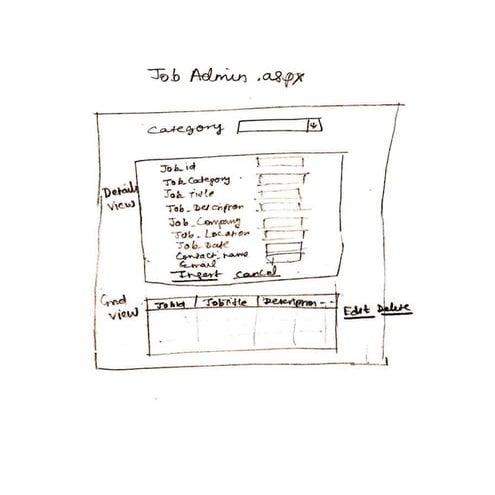 Job Admin .aspx
Category
Details View
Job_id
Job_Category
Job_Title
Job_Description
Job_Company
Job_Location
Job_Date
Contact_name
Email
Insert Cancel
Grid view
JobId JobTitle Description --
Edit Delete